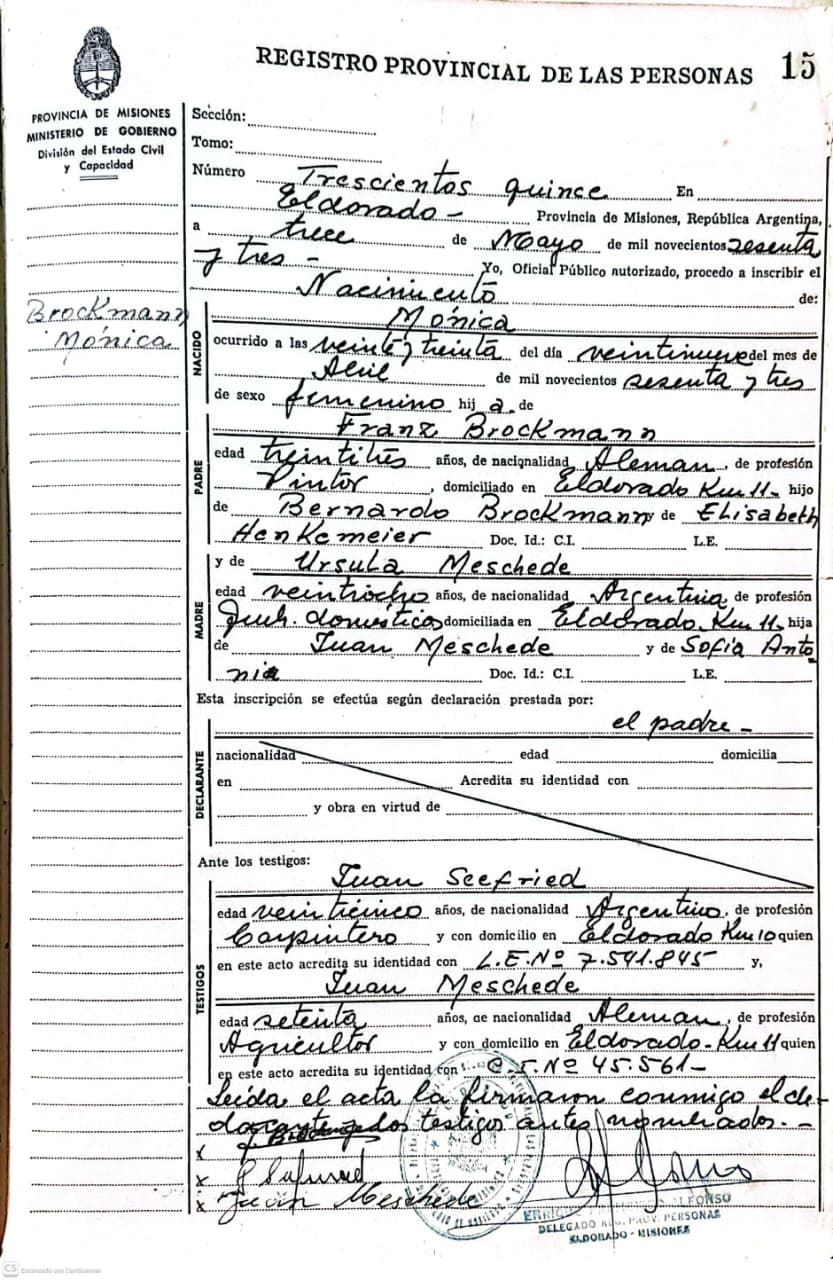 REGISTRO PROVINCIAL DE LAS PERSONAS 15
PROVINCIA DE MISIONES
MINISTERIO DE GOBIERNO
División del Estado Civil
y Capacidad
Brockmann
Mónica
Sección:
Tomo:
Número Trescientos quince En
Eldorado - Provincia de Misiones, República Argentina,
a trece de Mayo de mil novecientos sesenta
y tres - Yo, Oficial Público autorizado, procedo a inscribir el
Nacimiento de:
NACIDO
Mónica
ocurrido a las veinte y treinta del día veintinueve del mes de
Abril de mil novecientos sesenta y tres
de sexo femenino hij a. de
PADRE
Franz Brockmann
edad treintitrés años, de nacionalidad Aleman, de profesión
Pintor, domiciliado en Eldorado Km 11- hijo
de Bernardo Brockmann y de Elisabeth
Henkemeier Doc. Id.: C.I. L.E.
MADRE
y de Ursula Meschede
edad veintiocho años, de nacionalidad Argentina de profesión
domésticos domiciliada en Eldorado-Km 11- hija
de Juan Meschede y de Sofía Anto
nia Doc. Id.: C.I. L.E.
Esta inscripción se efectúa según declaración prestada por:
el padre -
DECLARANTE
nacionalidad edad domicilia
en Acredita su identidad con
y obra en virtud de
Ante los testigos:
TESTIGOS
Juan Seefried
edad veinticinco años, de nacionalidad Argentino, de profesión
Carpintero y con domicilio en Eldorado Km 10 quien
en este acto acredita su identidad con L.E. Nº 7.541.845 y,
Juan Meschede
edad setenta años, de nacionalidad Aleman, de profesión
Agricultor y con domicilio en Eldorado-Km 11 quien
en este acto acredita su identidad con C.I. Nº 45.561-
Leída el acta la firmaron conmigo el de-
clarante y dos testigos antes nombrados.-
x
x
x Juan Meschede
ALFONSO
DELEGADO REG. PROV. PERSONAS
ELDORADO - MISIONES
CS Escaneado con CamScanner